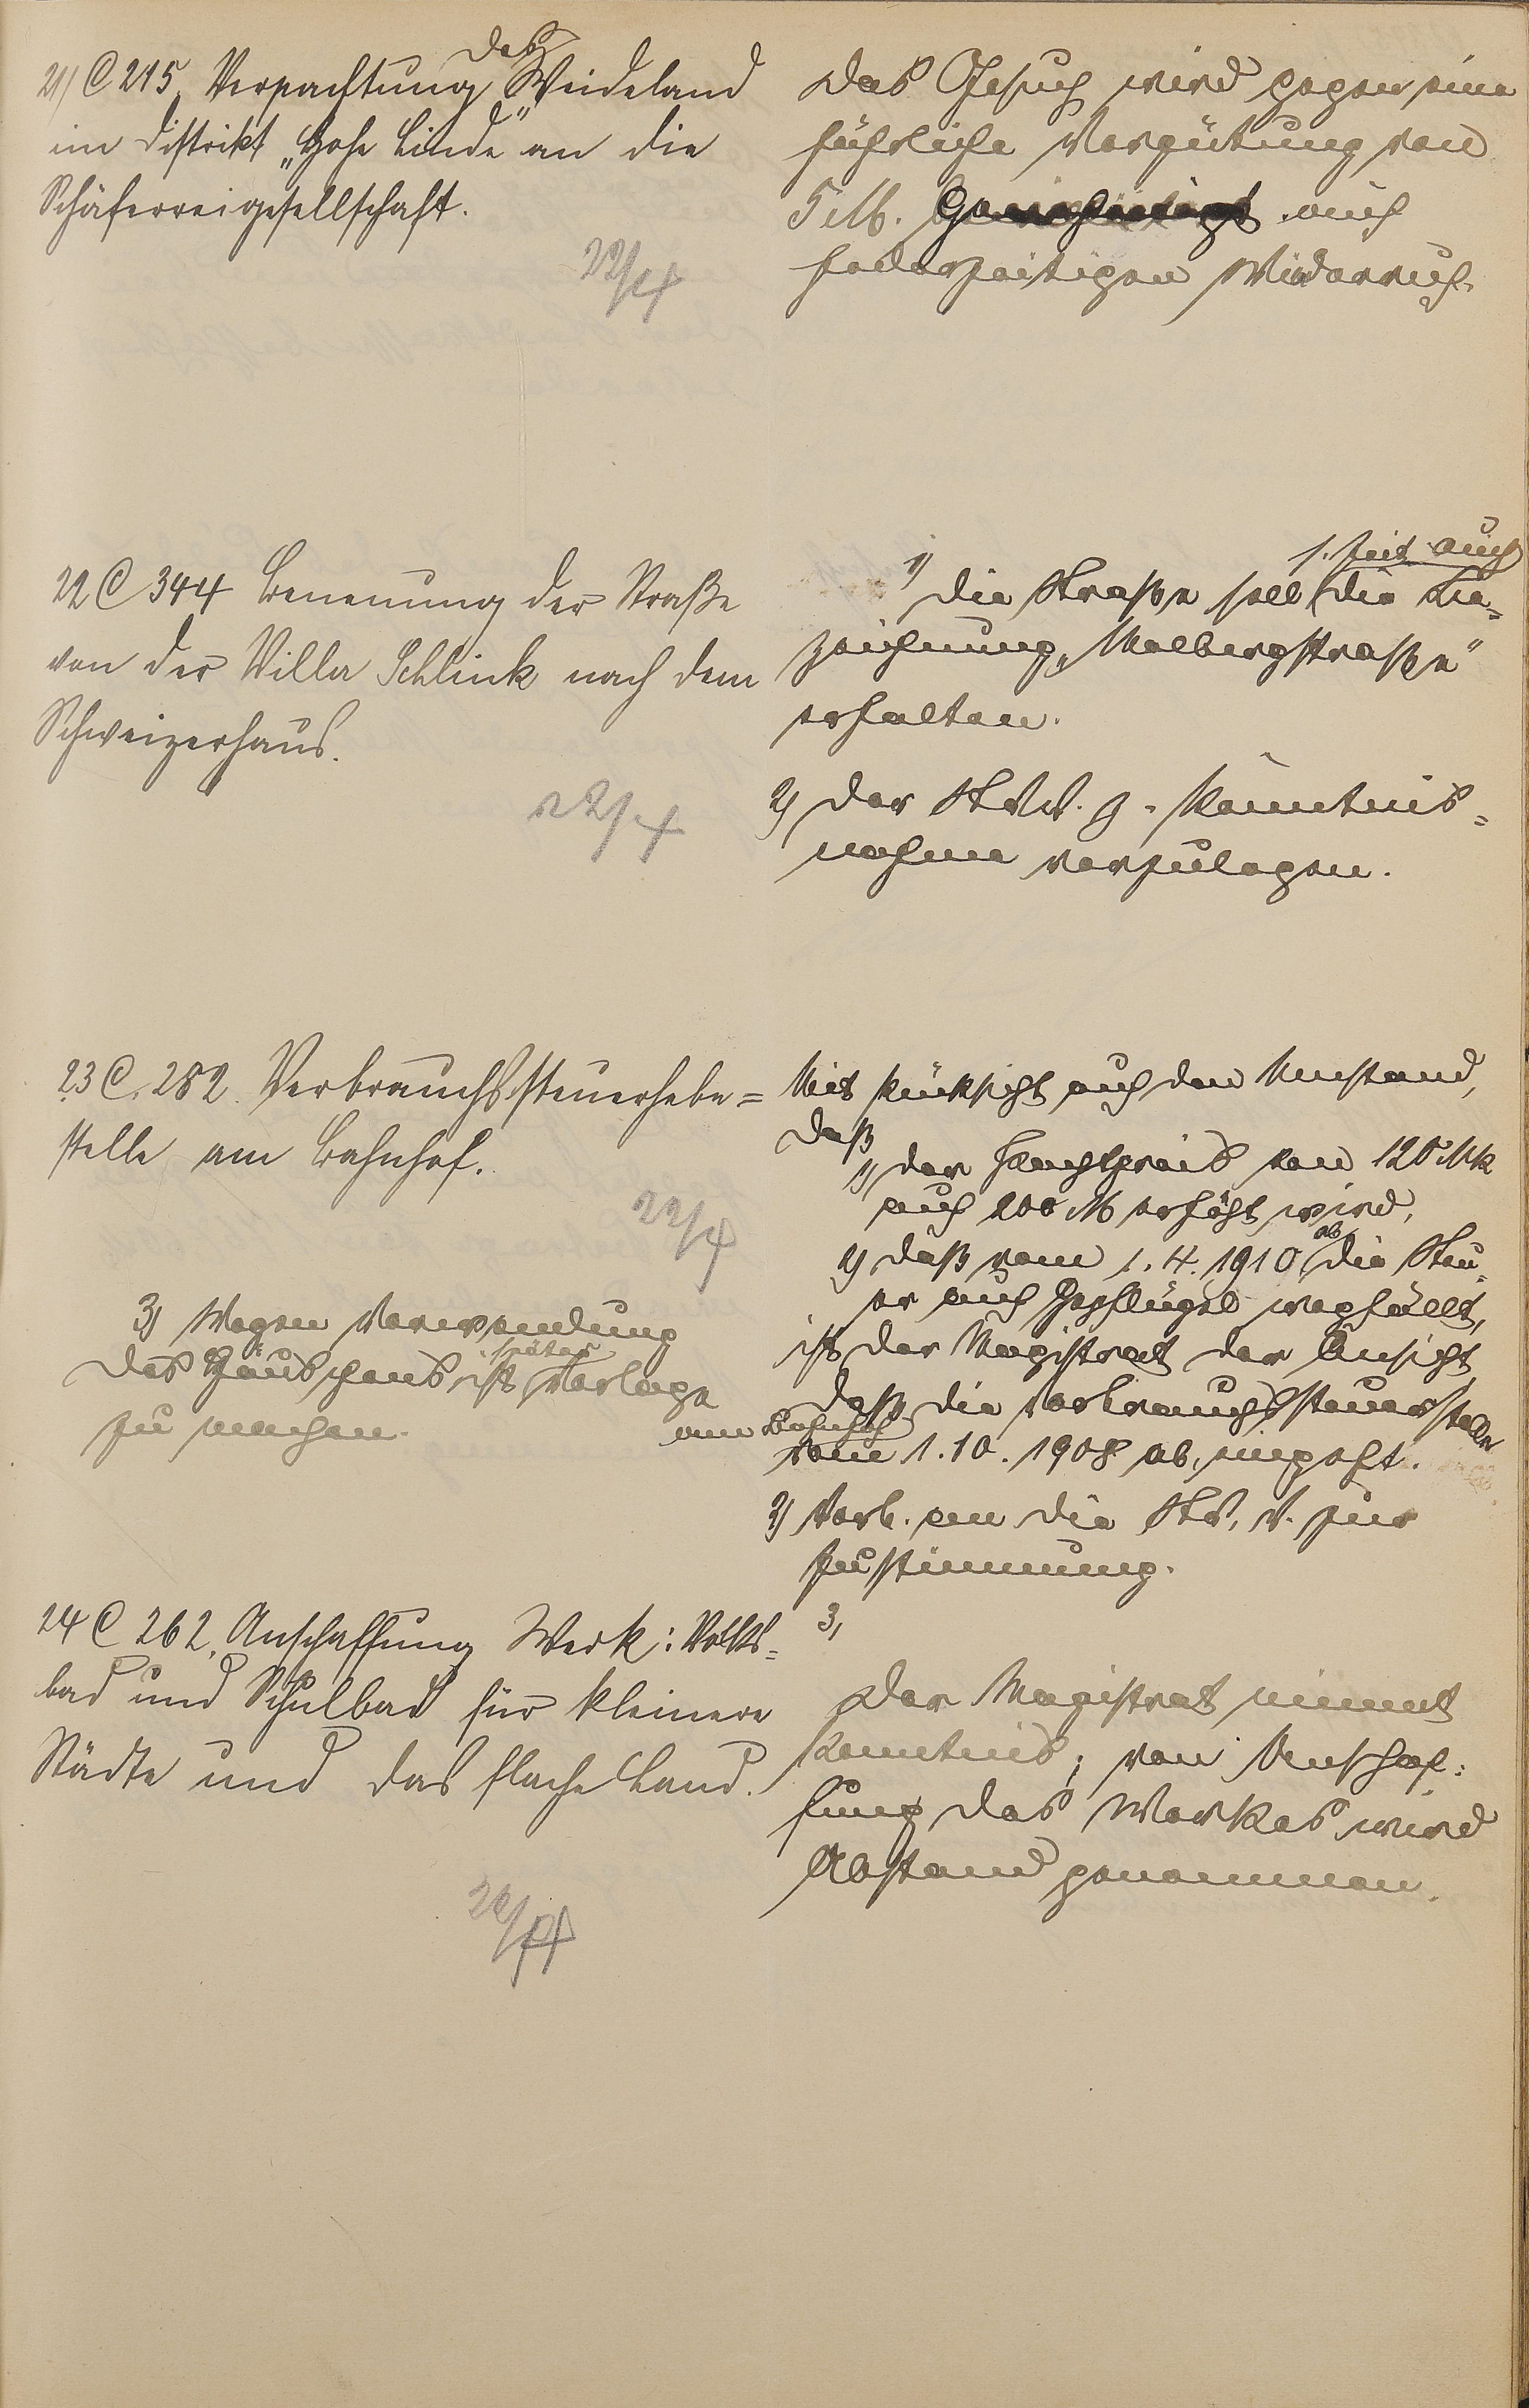 21) C 215. Verpachtung des Weideland
im Distrikt „Hohe Linde“ an die
Schäfereigesellschaft.
22/4
Das Gesuch wird gegen eine
jährliche Vergütung von
5 M. genehmigt auf
jederzeitigen Widerruf.
22 C 344 Benennung der Straße
von der Villa Schlink nach dem
Schweizerhaus.
22/4
1) Die Straße soll s. Zeit auch die Be=
zeichnung „Malbergstraße“
erhalten.
2) Der StvV. z. Kenntnis=
nahme vorzulegen.
23 C. 282. Verbrauchssteuerhebe=
stelle am Bahnhof.
22/4
Mit Rücksicht auf den Umstand,
daß
1) der Pachtpreis von 120 Mk
auf 200 M erhöht wird,
2) daß vom 1. 4. 1910 ab die Steu=
er auf Geflügel wegfällt,
ist der Magistrat der Ansicht,
daß die Verbrauchssteuerstelle
am Bahnhof
vom 1. 10. 1908 ab, eingeht.
2) Vorl. an die Stv. V. zur
Zustimmung.
3,
3) Wegen Verwendung
des Häuschens ist später Vorlage
zu machen.
24 C 262. Anschaffung Werk: Volks=
bad und Schulbad für kleinere
Städte und das flache Land.
22/4
Der Magistrat nimmt
Kenntnis; von Anschaf=
fung des Werkes wird
Abstand genommen.